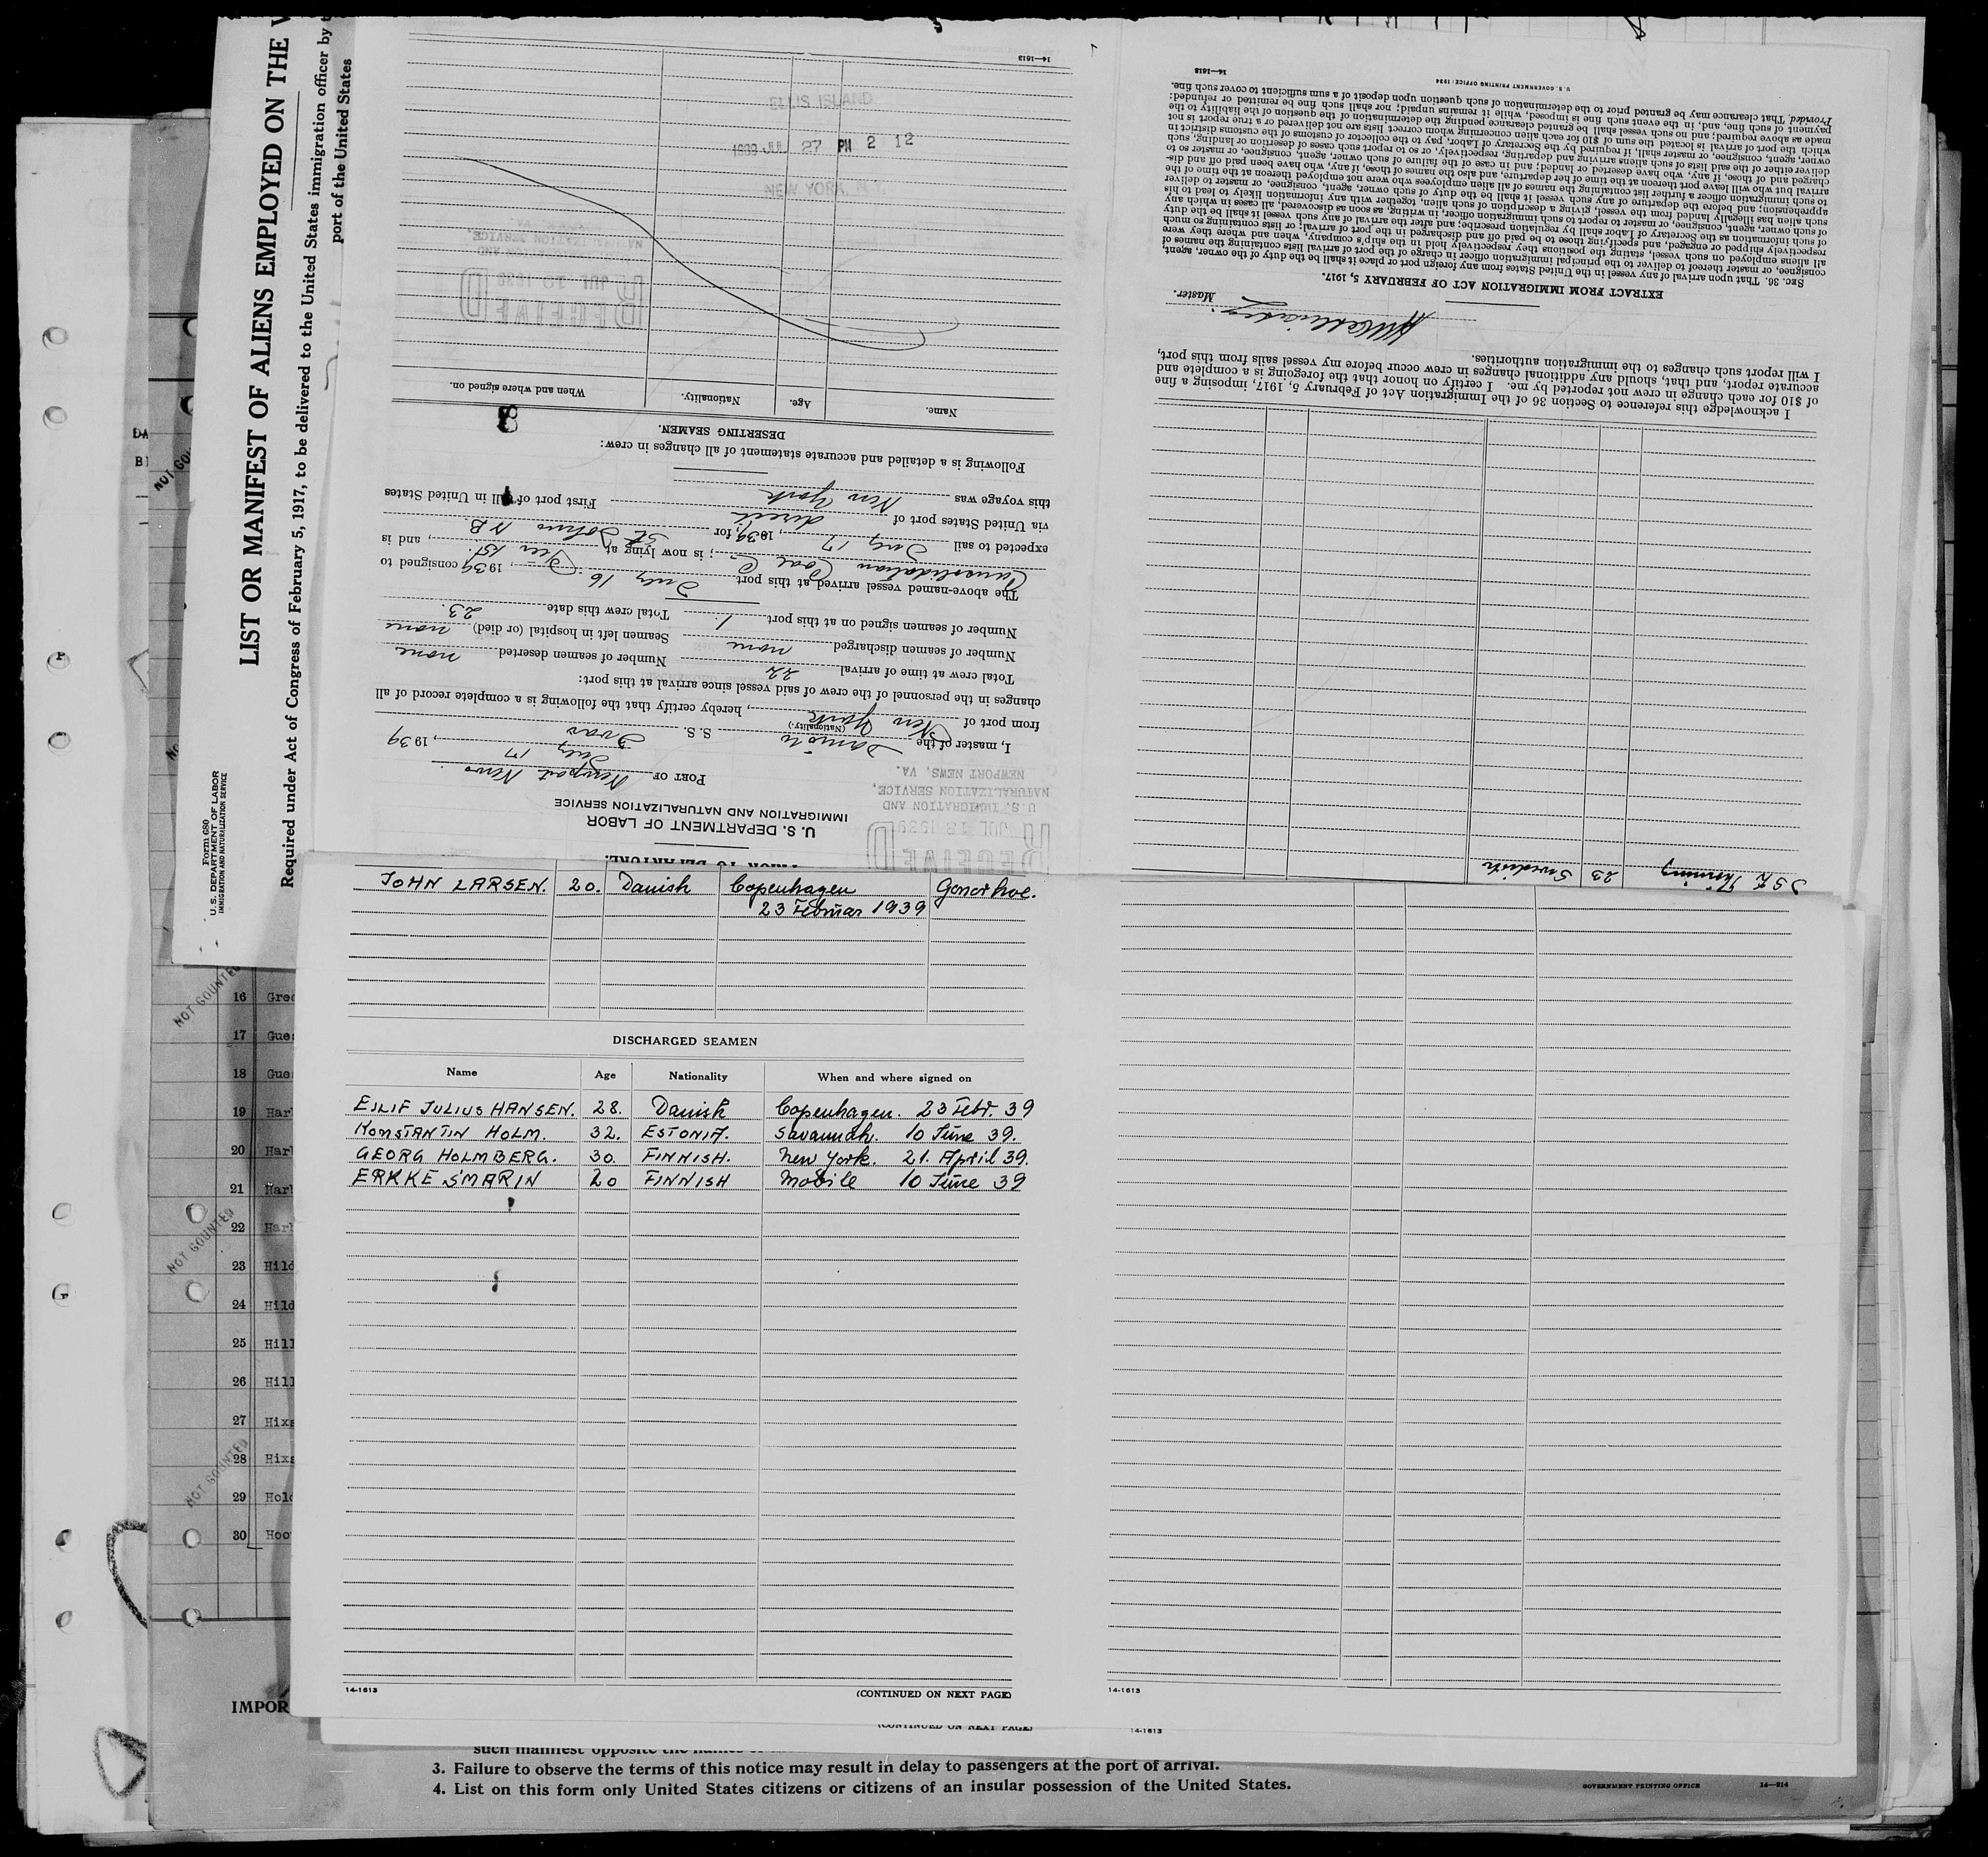 LIST OR MANIFEST OF ALIENS EMPLOYED ON THE
Required under Act of Congress of February 5, 1917, to be delivered to the United States immigration officer by
port of the United States
Form 680
U. S. DEPARTMENT OF LABOR
IMMIGRATION AND NATURALIZATION SERVICE
PRIOR TO DEPARTURE.
U. S. DEPARTMENT OF LABOR
IMMIGRATION AND NATURALIZATION SERVICE
RECEIVED
JUL 18 1939
U.S. IMMIGRATION AND
NATURALIZATION SERVICE,
NEWPORT NEWS, VA.
PORT OF Newport News
July 17, 1939
I, master of the Danish S. S. Ivar
(Nationality.)
from port of New York, hereby certify that the following is a complete record of all
changes in the personnel of the crew of said vessel since arrival at this port:
Total crew at time of arrival 22 Number of seamen deserted none
Number of seamen discharged none Seamen left in hospital (or died) none
Number of seamen signed on at this port 1. Total crew this date 23.
The above-named vessel arrived at this port July 16, 1939, consigned to
Consolidation Coal Co; is now lying at Pier 15., and is
expected to sail July 17, 1939, for St Johns N.B
via United States port of direct
this voyage was New York First port of call in United States
Following is a detailed and accurate statement of all changes in crew:
DESERTING SEAMEN.
Name. Age. Nationality. When and where signed on.
RECEIVED
JUL 18 1939
ELLIS ISLAND
1939 JUL 27 PM 2 12
NEW YORK, N.Y.
14—1613
23 Swedish
I acknowledge this reference to Section 36 of the Immigration Act of February 5, 1917, imposing a fine
of $10 for each change in crew not reported by me. I certify on honor that the foregoing is a complete and
accurate report, and that, should any additional changes in crew occur before my vessel sails from this port,
I will report such changes to the immigration authorities.
Master.
EXTRACT FROM IMMIGRATION ACT OF FEBRUARY 5, 1917.
SEC. 36. That upon arrival of any vessel in the United States from any foreign port or place it shall be the duty of the owner, agent,
consignee, or master thereof to deliver to the principal immigration officer in charge of the port of arrival lists containing the names of
all aliens employed on such vessel, stating the positions they respectively hold in the ship's company, when and where they were
respectively shipped or engaged, and specifying those to be paid off and discharged in the port of arrival; or lists containing so much
of such information as the Secretary of Labor shall by regulation prescribe; and after the arrival of any such vessel it shall be the duty
of such owner, agent, consignee, or master to report to such immigration officer, in writing, as soon as discovered, all cases in which any
such alien has illegally landed from the vessel, giving a description of such alien, together with any information likely to lead to his
apprehension; and before the departure of any such vessel it shall be the duty of such owner, agent, consignee, or master to deliver
to such immigration officer a further list containing the names of all alien employees who were not employed thereon at the time of the
arrival but who will leave port thereon at the time of her departure, and also the names of those, if any, who have been paid off and dis-
charged and of those, if any, who have deserted or landed; and in case of the failure of such owner, agent, consignee, or master so to
deliver either of the said lists of such aliens arriving and departing, respectively, or so to report such cases of desertion or landing, such
owner, agent, consignee, or master shall, if required by the Secretary of Labor, pay to the collector of customs of the customs district in
which the port of arrival is located the sum of $10 for each alien concerning whom correct lists are not delivered or a true report is not
made as above required; and no such vessel shall be granted clearance pending the determination of the question of the liability to the
payment of such fine, and, in the event such fine is imposed, while it remains unpaid; nor shall such fine be remitted or refunded:
Provided, That clearance may be granted prior to the determination of such question upon deposit of a sum sufficient to cover such fine.
U. S. GOVERNMENT PRINTING OFFICE: 1934
14—1613
JOHN LARSEN. 20. Danish Copenhagen Gonorhoe.
23 Februar 1939
DISCHARGED SEAMEN
Name Age Nationality When and where signed on
EILIF JULIUS HANSEN. 28. Danish Copenhagen. 23 Febr. 39
KONSTANTIN HOLM. 32. ESTONIA. Savannah. 10 June 39.
GEORG HOLMBERG. 30. FINNISH. New York. 21. April 39.
ERKKE S'MARIN 20 FINNISH Mobile 10 June 39
14-1613
(CONTINUED ON NEXT PAGE)
14-1613
(CONTINUED ON NEXT PAGE)
14-1613
NOT COUNTED
16 Gree
17 Gues
18 Gues
19 Harl
20 Harl
21 Harl
22 Harl
23 Hild
24 Hild
25 Hill
26 Hill
27 Hixs
28 Hixs
29 Hold
30 Hoo
NOT COUNTED
NOT COUNTED
IMPOR
such manifest opposite the names
3. Failure to observe the terms of this notice may result in delay to passengers at the port of arrival.
4. List on this form only United States citizens or citizens of an insular possession of the United States.
GOVERNMENT PRINTING OFFICE 14—314